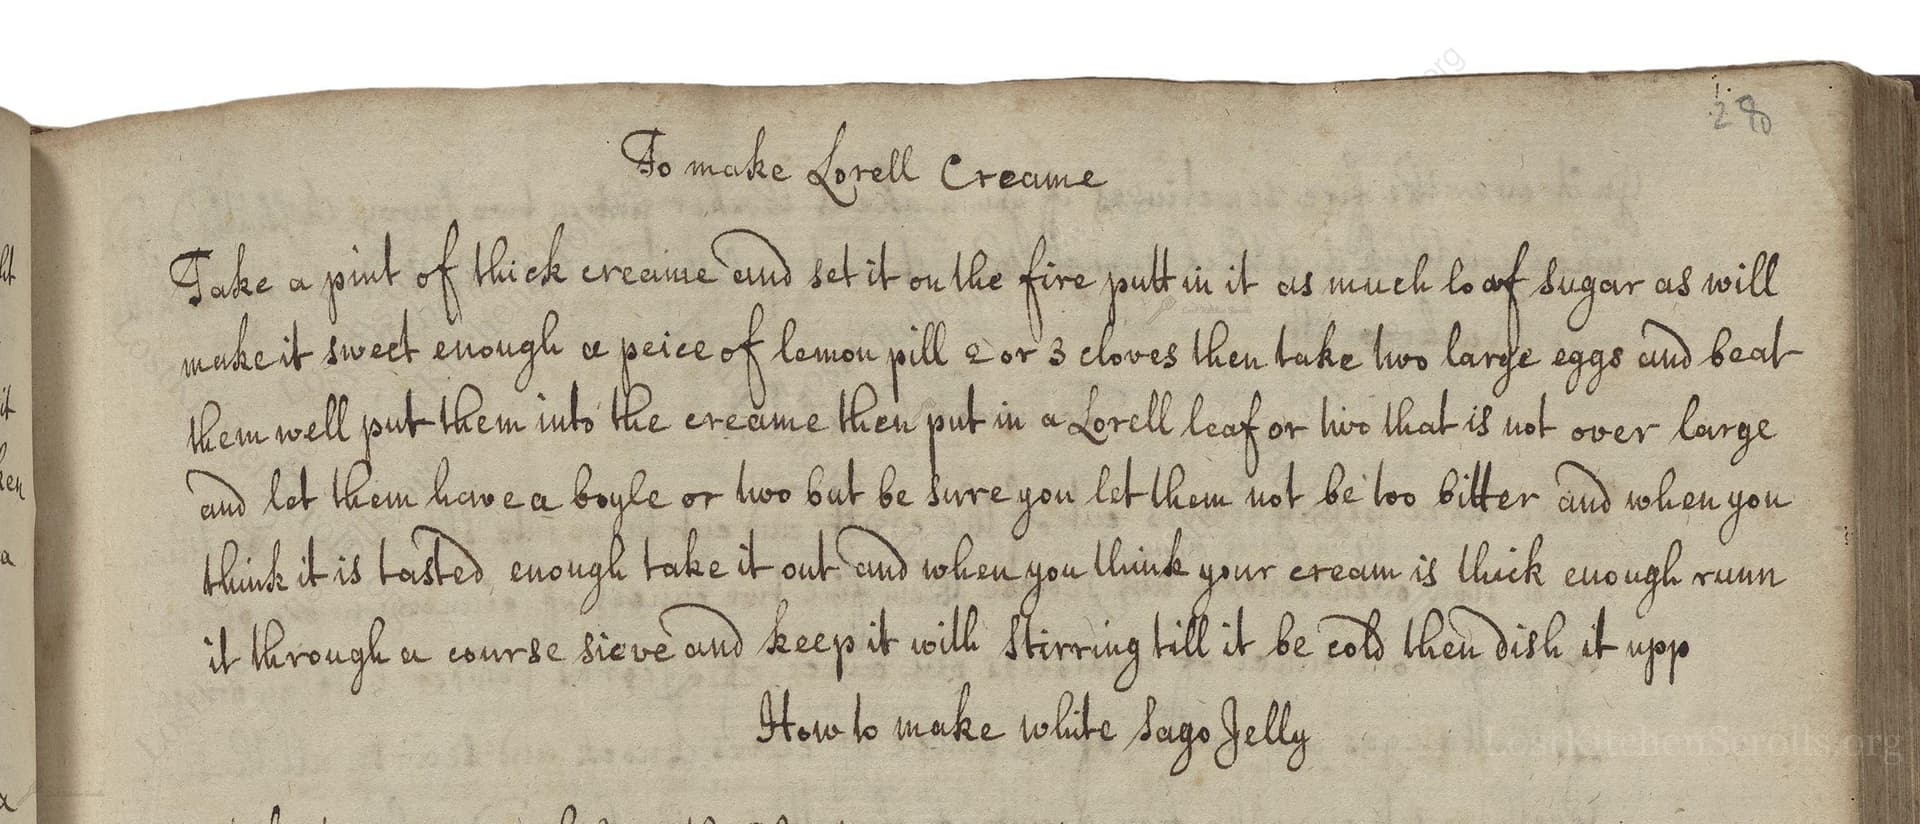 28
To make Lorell Creame
Take a pint of thick creame and set it on the fire putt in it as much loaf sugar as will
make it sweet enough a peice of lemon pill 2 or 3 cloves then take two large eggs and beat
them well put them into the creame then put in a Lorell leaf or two that is not over large
and let them have a boyle or two but be sure you let them not be too bitter and when you
think it is tasted enough take it out and when you think your cream is thick enough runn
it through a course sieve and keep it with stirring till it be cold then dish it upp
How to make white Sago Jelly
LostKitchenScrolls.org